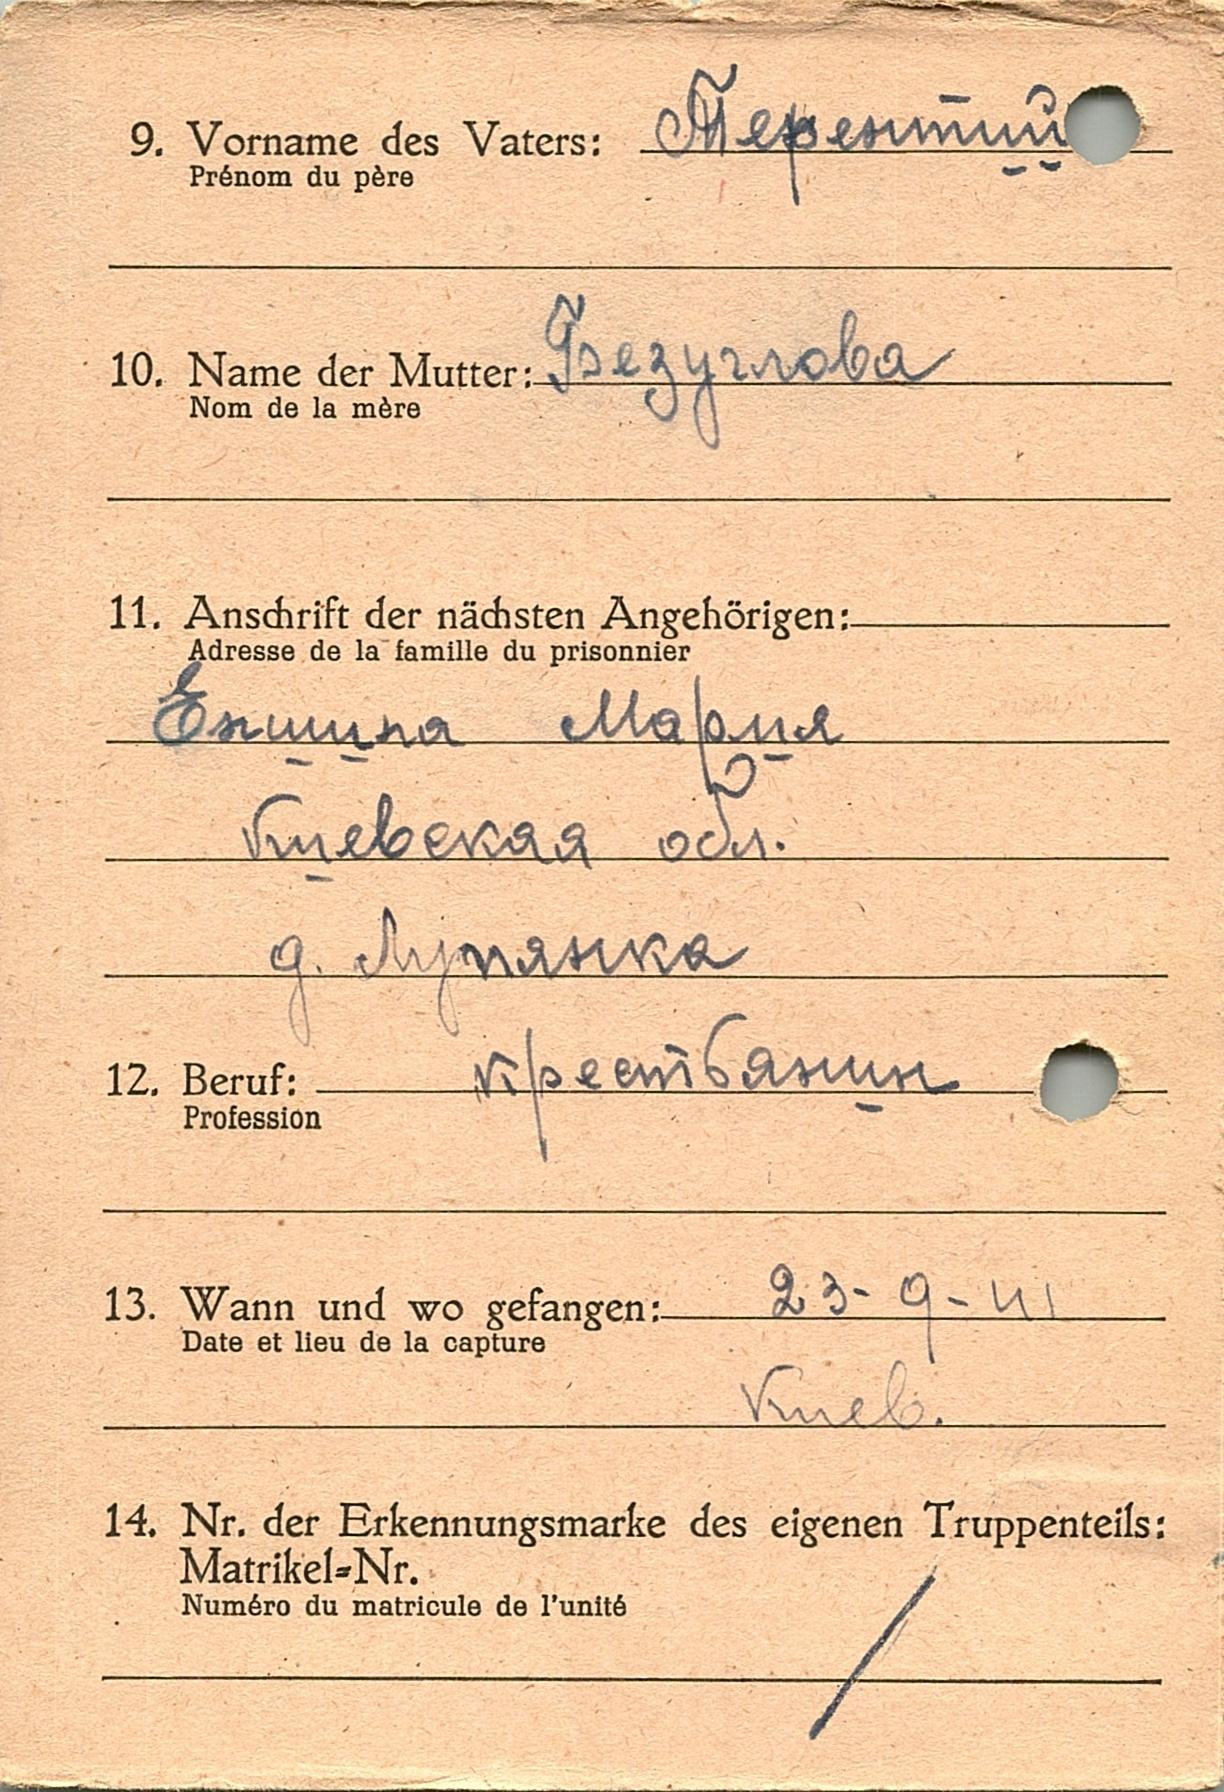 9. Vorname des Vaters: Терентий
Prénom du père
10. Name der Mutter: Безуглова
Nom de la mère
11. Anschrift der nächsten Angehörigen:
Adresse de la famille du prisonnier
Мария
Киевская обл.
д. Лупянка
12. Beruf: крестьянин
Profession
13. Wann und wo gefangen: 23-9-41
Date et lieu de la capture
Киев.
14. Nr. der Erkennungsmarke des eigenen Truppenteils:
Matrikel-Nr.
Numéro du matricule de l'unité
/